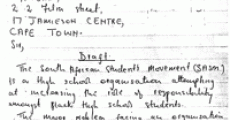 2 2 Film street,
17 JAMIESON CENTRE,
CAPE TOWN.
Sir,
Draft:
The South African Students Movement (SASM)
is a High school organisation attempting
at increasing the role of responsibility
amongst Black High school students.
The major problem facing an organisation